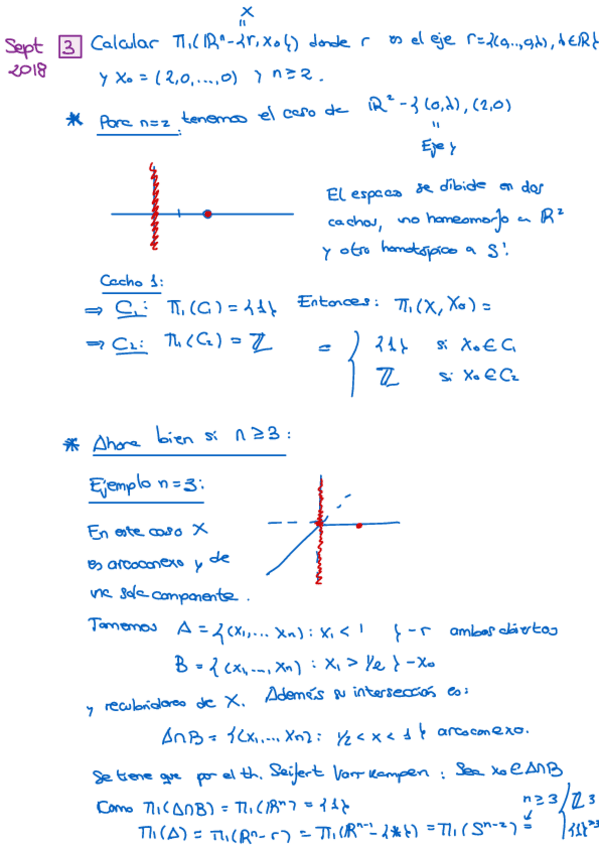 X
"
Sept 3 Calcular Π₁(ℝⁿ-{r, x₀}) donde r es el eje r={(0,..,0,λ), λ∈ℝ}
2018 y x₀ = (2,0,...,0) y n≥2.
* Para n=2, tenemos el caso de ℝ²-{(0,λ), (2,0)
"
Eje y
El espacio se dibide en dos
cachos, uno homeomorfo a ℝ²
y otro homotópico a S¹.
Cacho 1:
⇒ C₁: Π₁(C₁) = {1} Entonces: Π₁(X, x₀) =
⇒ C₂: Π₁(C₂) = ℤ = { {1} si x₀∈C₁
ℤ si x₀∈C₂
* Ahora bien si n≥3:
Ejemplo n=3:
En este caso X
es arcoconexo y de
una sola componente.
Tomemos A = {(x₁,... xₙ) : x₁ < 1 } - r ambos abiertos
B = {(x₁,...,xₙ) : x₁ > 1/2 } - x₀
y recubridores de X. Además su intersección es:
A∩B = {(x₁,... xₙ) : 1/2 < x < 1 } arcoconexo.
Se tiene que por el th. Seifert Van Kampen : Sea x₀∈A∩B
Como Π₁(A∩B) = Π₁(ℝⁿ) = {1} n≥3 ℤ 3
Π₁(A) = Π₁(ℝⁿ-r) = Π₁(ℝⁿ⁻¹-{*}) = Π₁(Sⁿ⁻²) = {1} >3